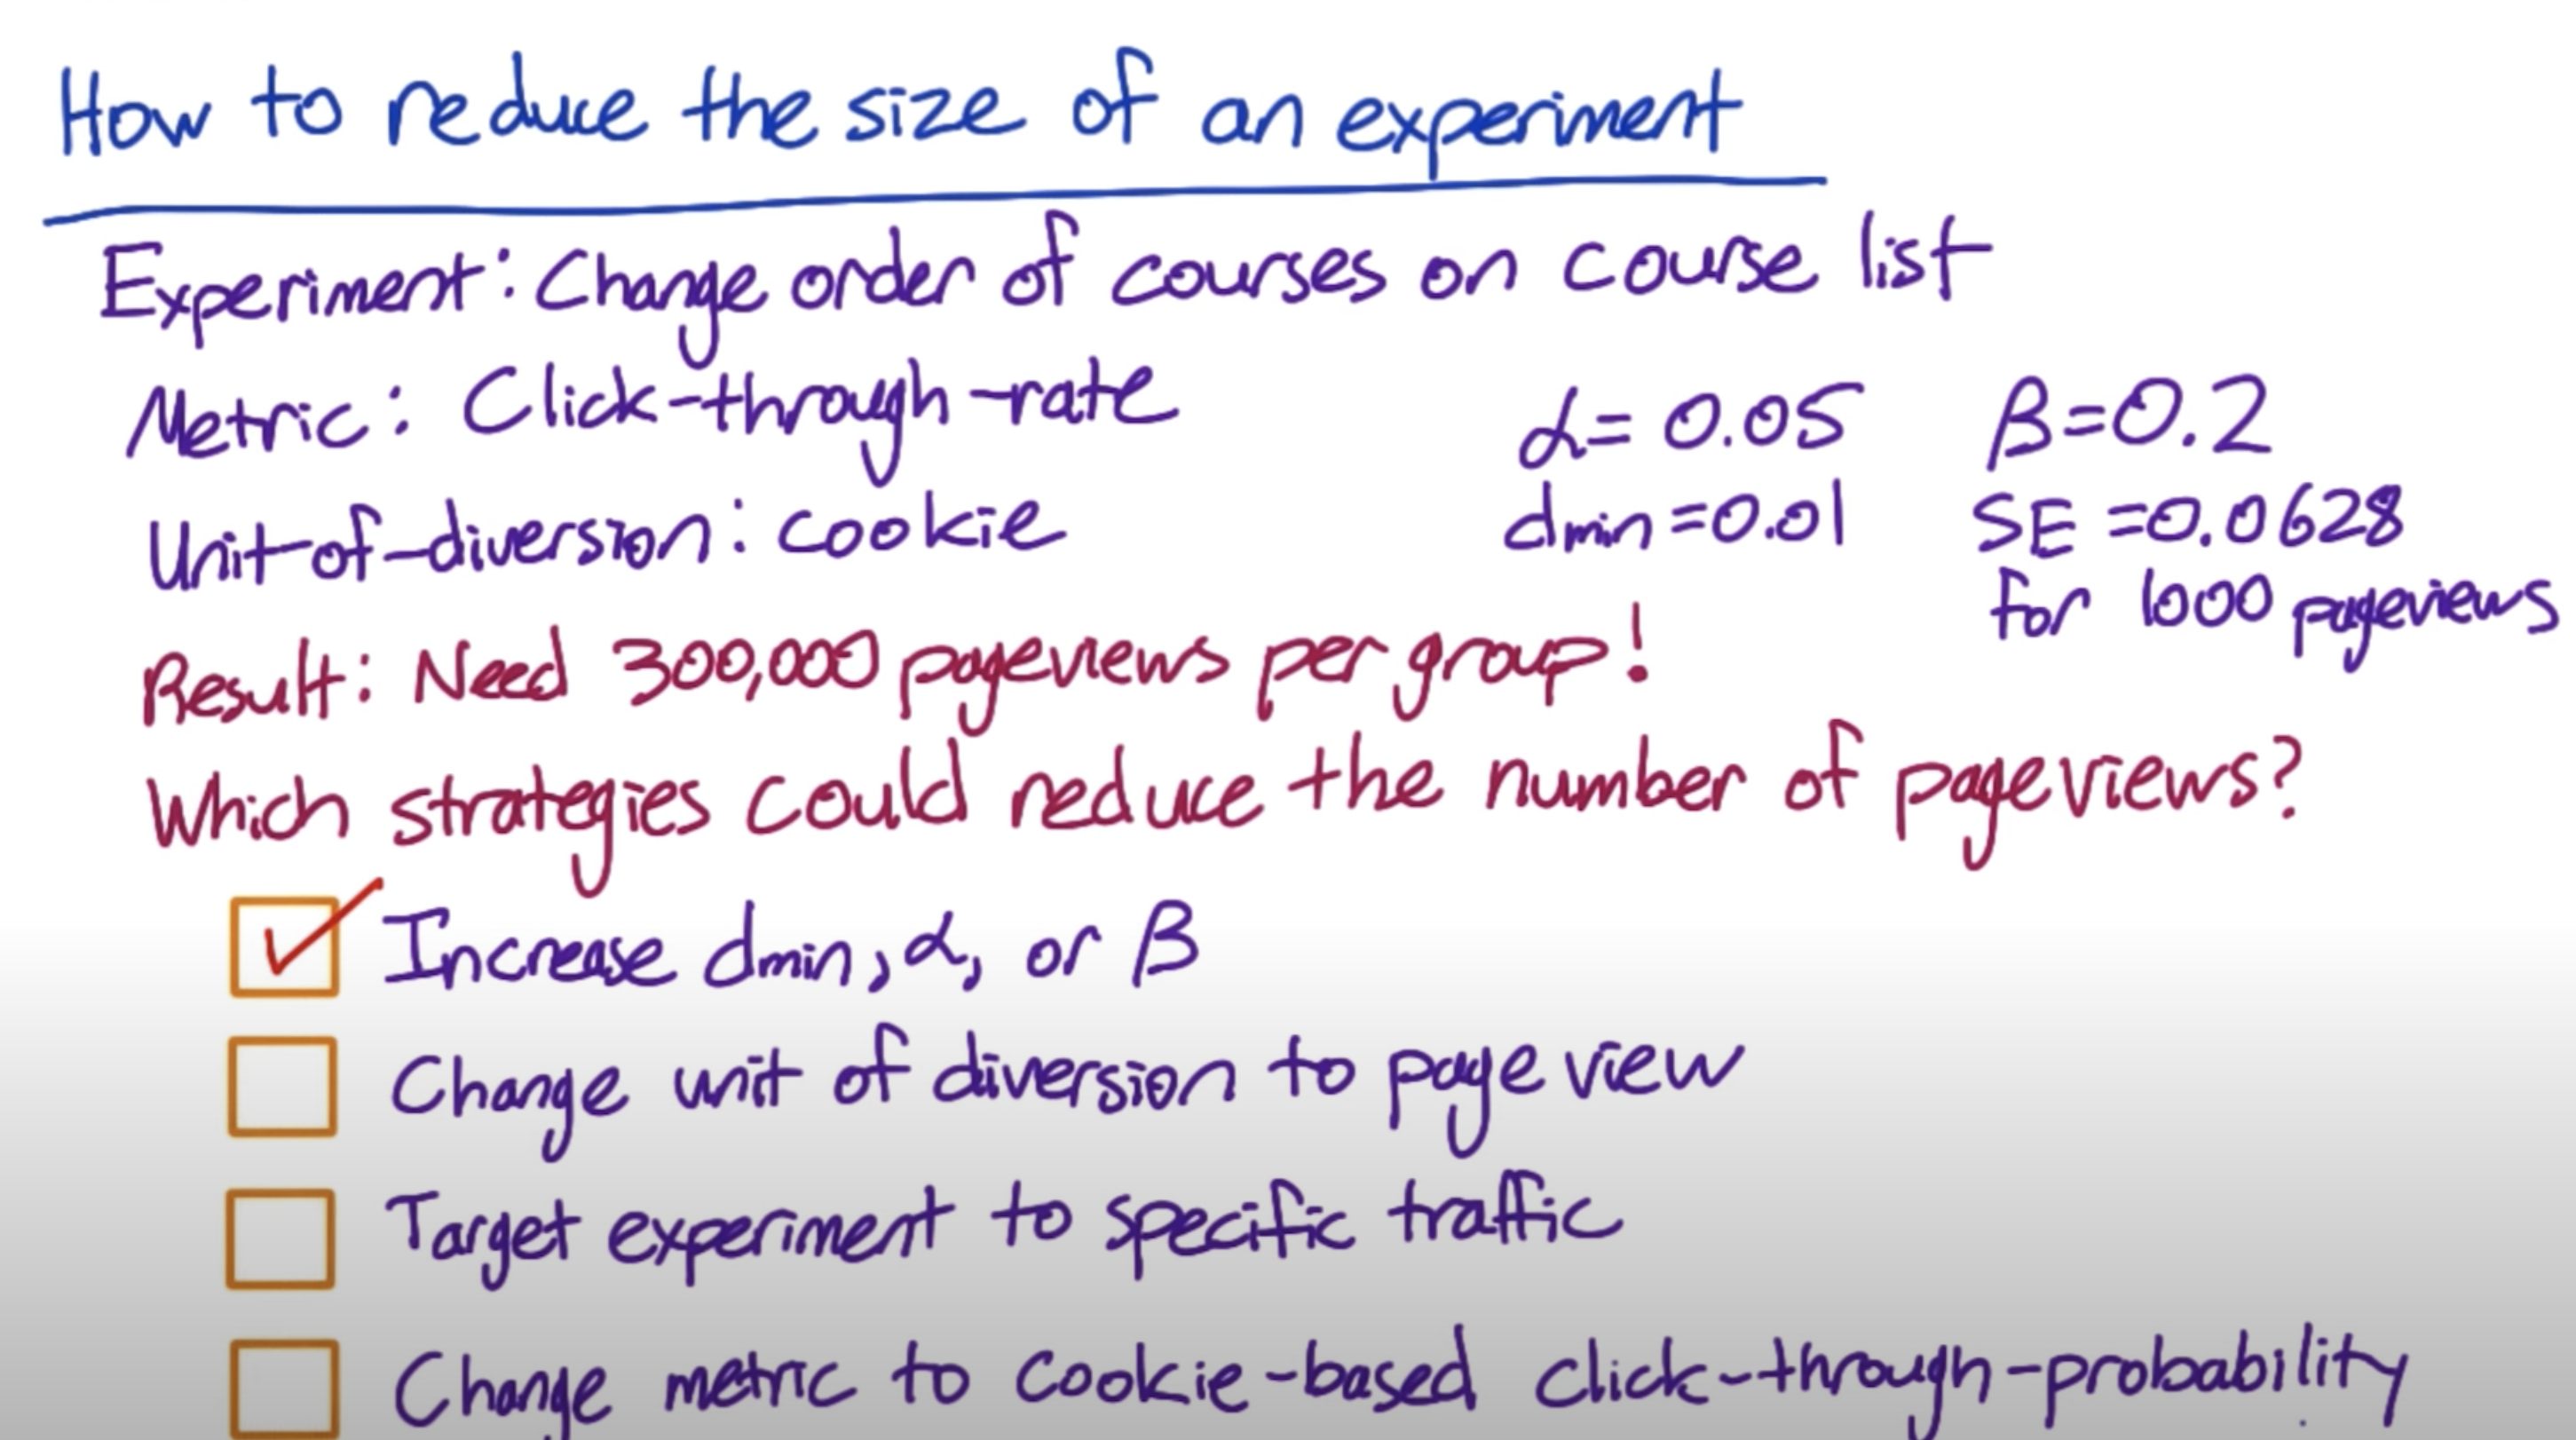 How to reduce the size of an experiment
Experiment: Change order of courses on course list
Metric: Click-through-rate
α = 0.05 β = 0.2
Unit-of-diversion: cookie
dmin = 0.01 SE = 0.0628
for 1000 pageviews
Result: Need 300,000 pageviews per group!
Which strategies could reduce the number of pageviews?
Increase dmin, α, or β
Change unit of diversion to page view
Target experiment to specific traffic
Change metric to cookie-based click-through-probability